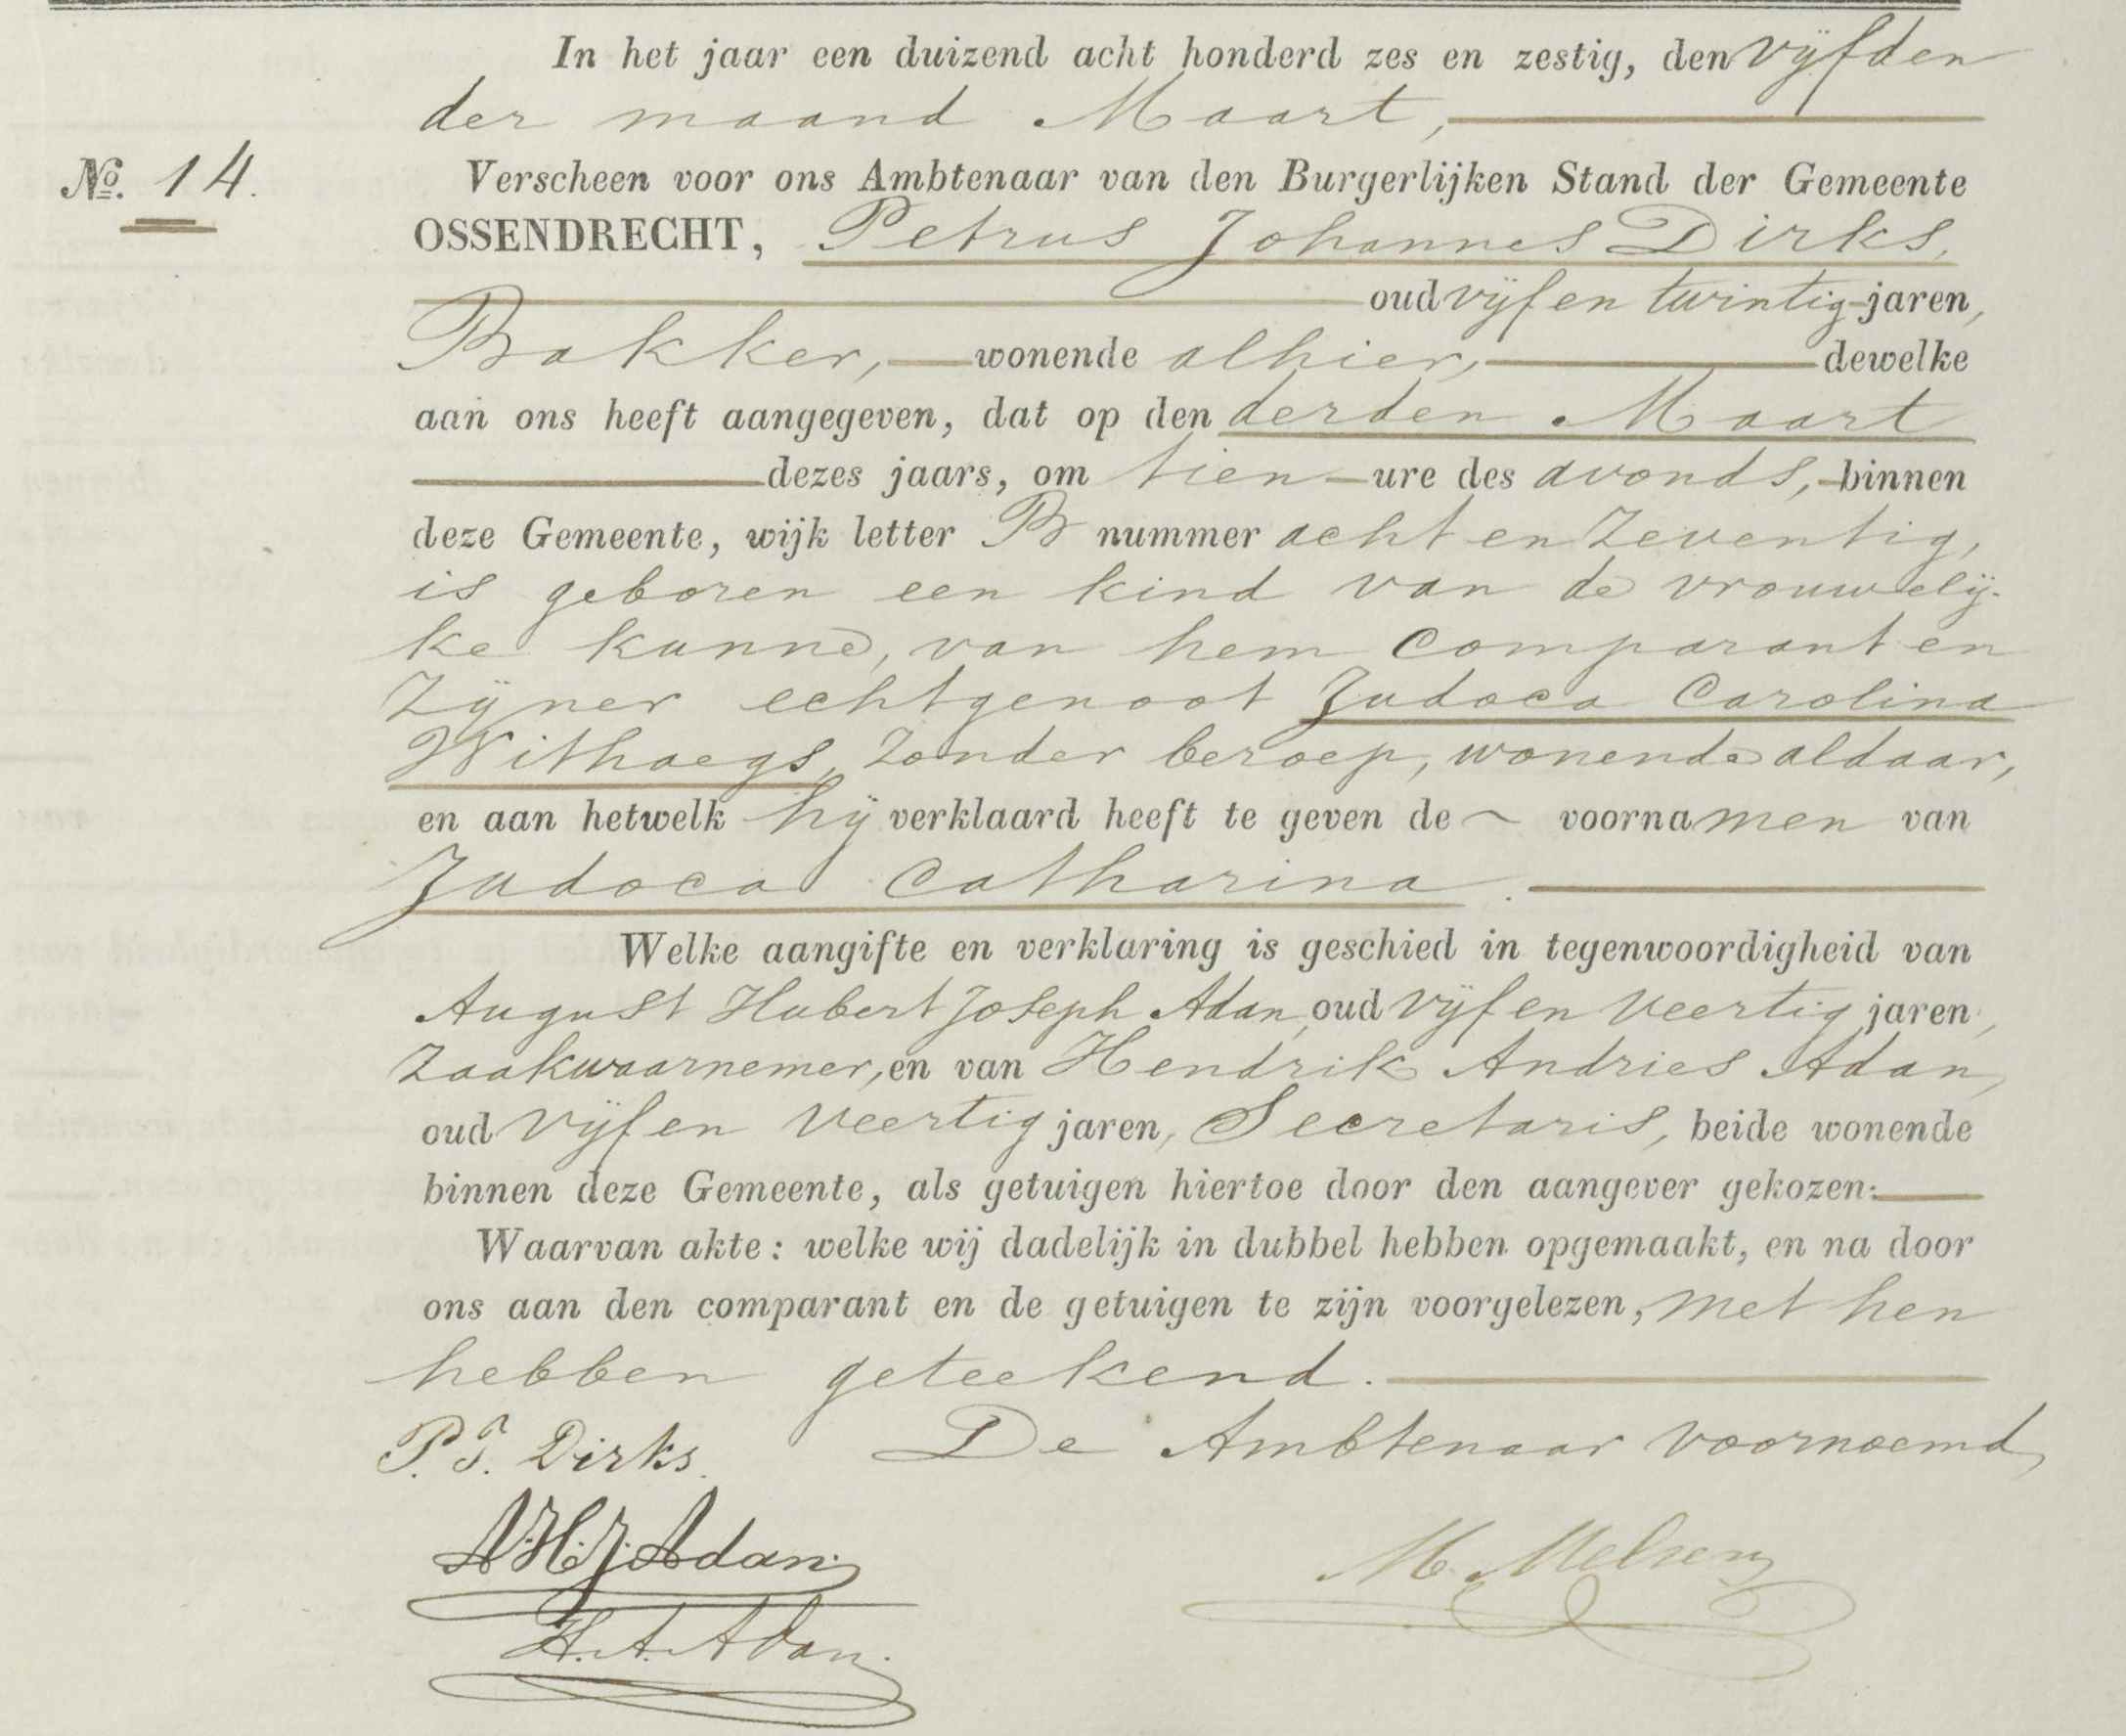 In het jaar een duizend acht honderd zes en zestig, den vijfden
der maand Maart,
No. 14.
Verscheen voor ons Ambtenaar van den Burgerlijken Stand der Gemeente
OSSENDRECHT, Petrus Johannes Dirks,
oud vijf en twintig jaren,
Bakker, wonende alhier, dewelke
aan ons heeft aangegeven, dat op den derden Maart
dezes jaars, om tien ure des avonds, binnen
deze Gemeente, wijk letter B nummer acht en zeventig,
is geboren een kind van de vrouwelij-
ke kunne, van hem comparant en
zijner echtgenoot Judoca Carolina
Withaegs, zonder beroep, wonende aldaar,
en aan hetwelk hij verklaard heeft te geven de ~ voornamen van
Judoca Catharina.
Welke aangifte en verklaring is geschied in tegenwoordigheid van
August Hubert Joseph Adan, oud vijf en veertig jaren,
zaakwaarnemer, en van Hendrik Andries Adan,
oud vijf en veertig jaren, Secretaris, beide wonende
binnen deze Gemeente, als getuigen hiertoe door den aangever gekozen.
Waarvan akte: welke wij dadelijk in dubbel hebben opgemaakt, en na door
ons aan den comparant en de getuigen te zijn voorgelezen, met hen
hebben geteekend.
P. J. Dirks. De Ambtenaar voornoemd,
A.H.J. Adan.
M. Melsen
H. A. Adan.